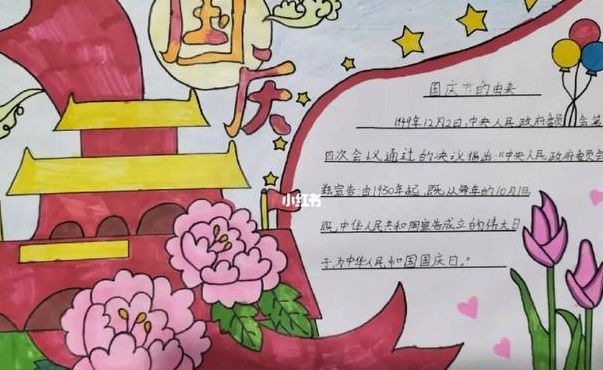 国
庆
国庆节的由来
1949年12月2日,中央人民政府委员会第
四次会议通过的决议指出"中央人民政府委员会
宣告:自1950年起,既从每年的10月1日
既,中华人民共和国宣告成立的伟大日
子,为中华人民共和国国庆日。"
小红书